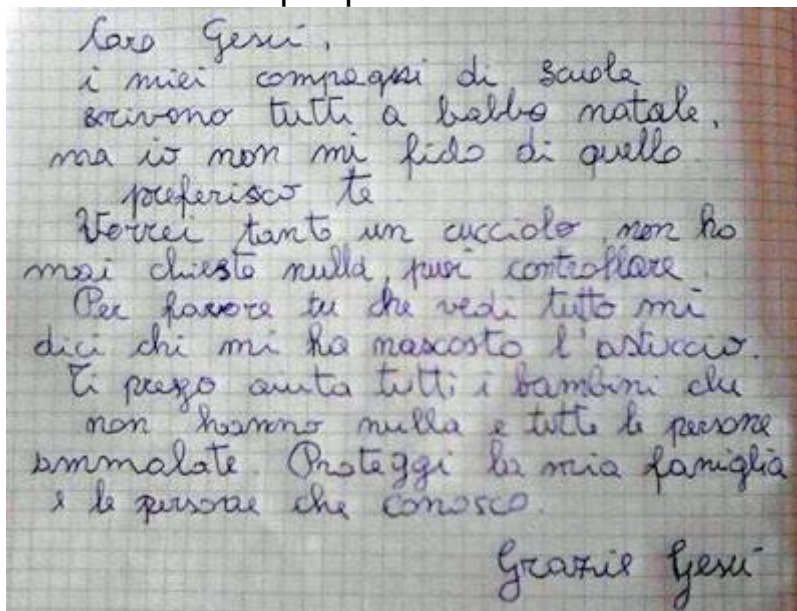 Caro Gesù,
i miei compagni di scuola
scrivono tutti a babbo natale,
ma io non mi fido di quello.
preferisco te
Vorrei tanto un cucciolo, non ho
mai chiesto nulla, puoi controllare.
Per favore tu che vedi tutto mi
dici chi mi ha nascosto l'astuccio.
Ti prego aiuta tutti i bambini che
non hanno nulla e tutte le persone
ammalate. Proteggi la mia famiglia
e le persone che conosco.
Grazie Gesù